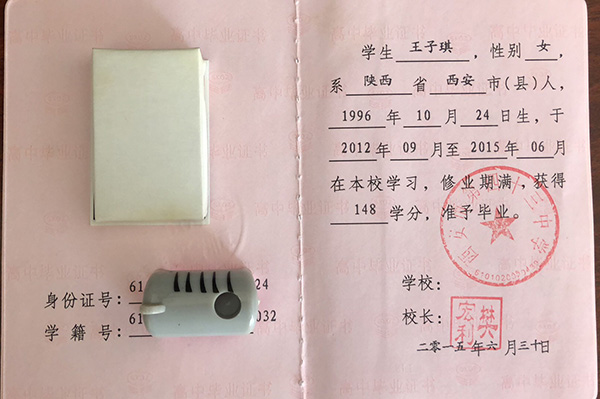 身份证号：61 24
学籍号：61 032
学生 王子琪，性别 女，
系 陕西 省 西安 市(县)人，
1996 年 10 月 24 日生，于
2012 年 09 月至 2015 年 06 月
在本校学习，修业期满，获得
148 学分，准予毕业。
学校：
校长：樊宏利
二〇一五年六月三十日